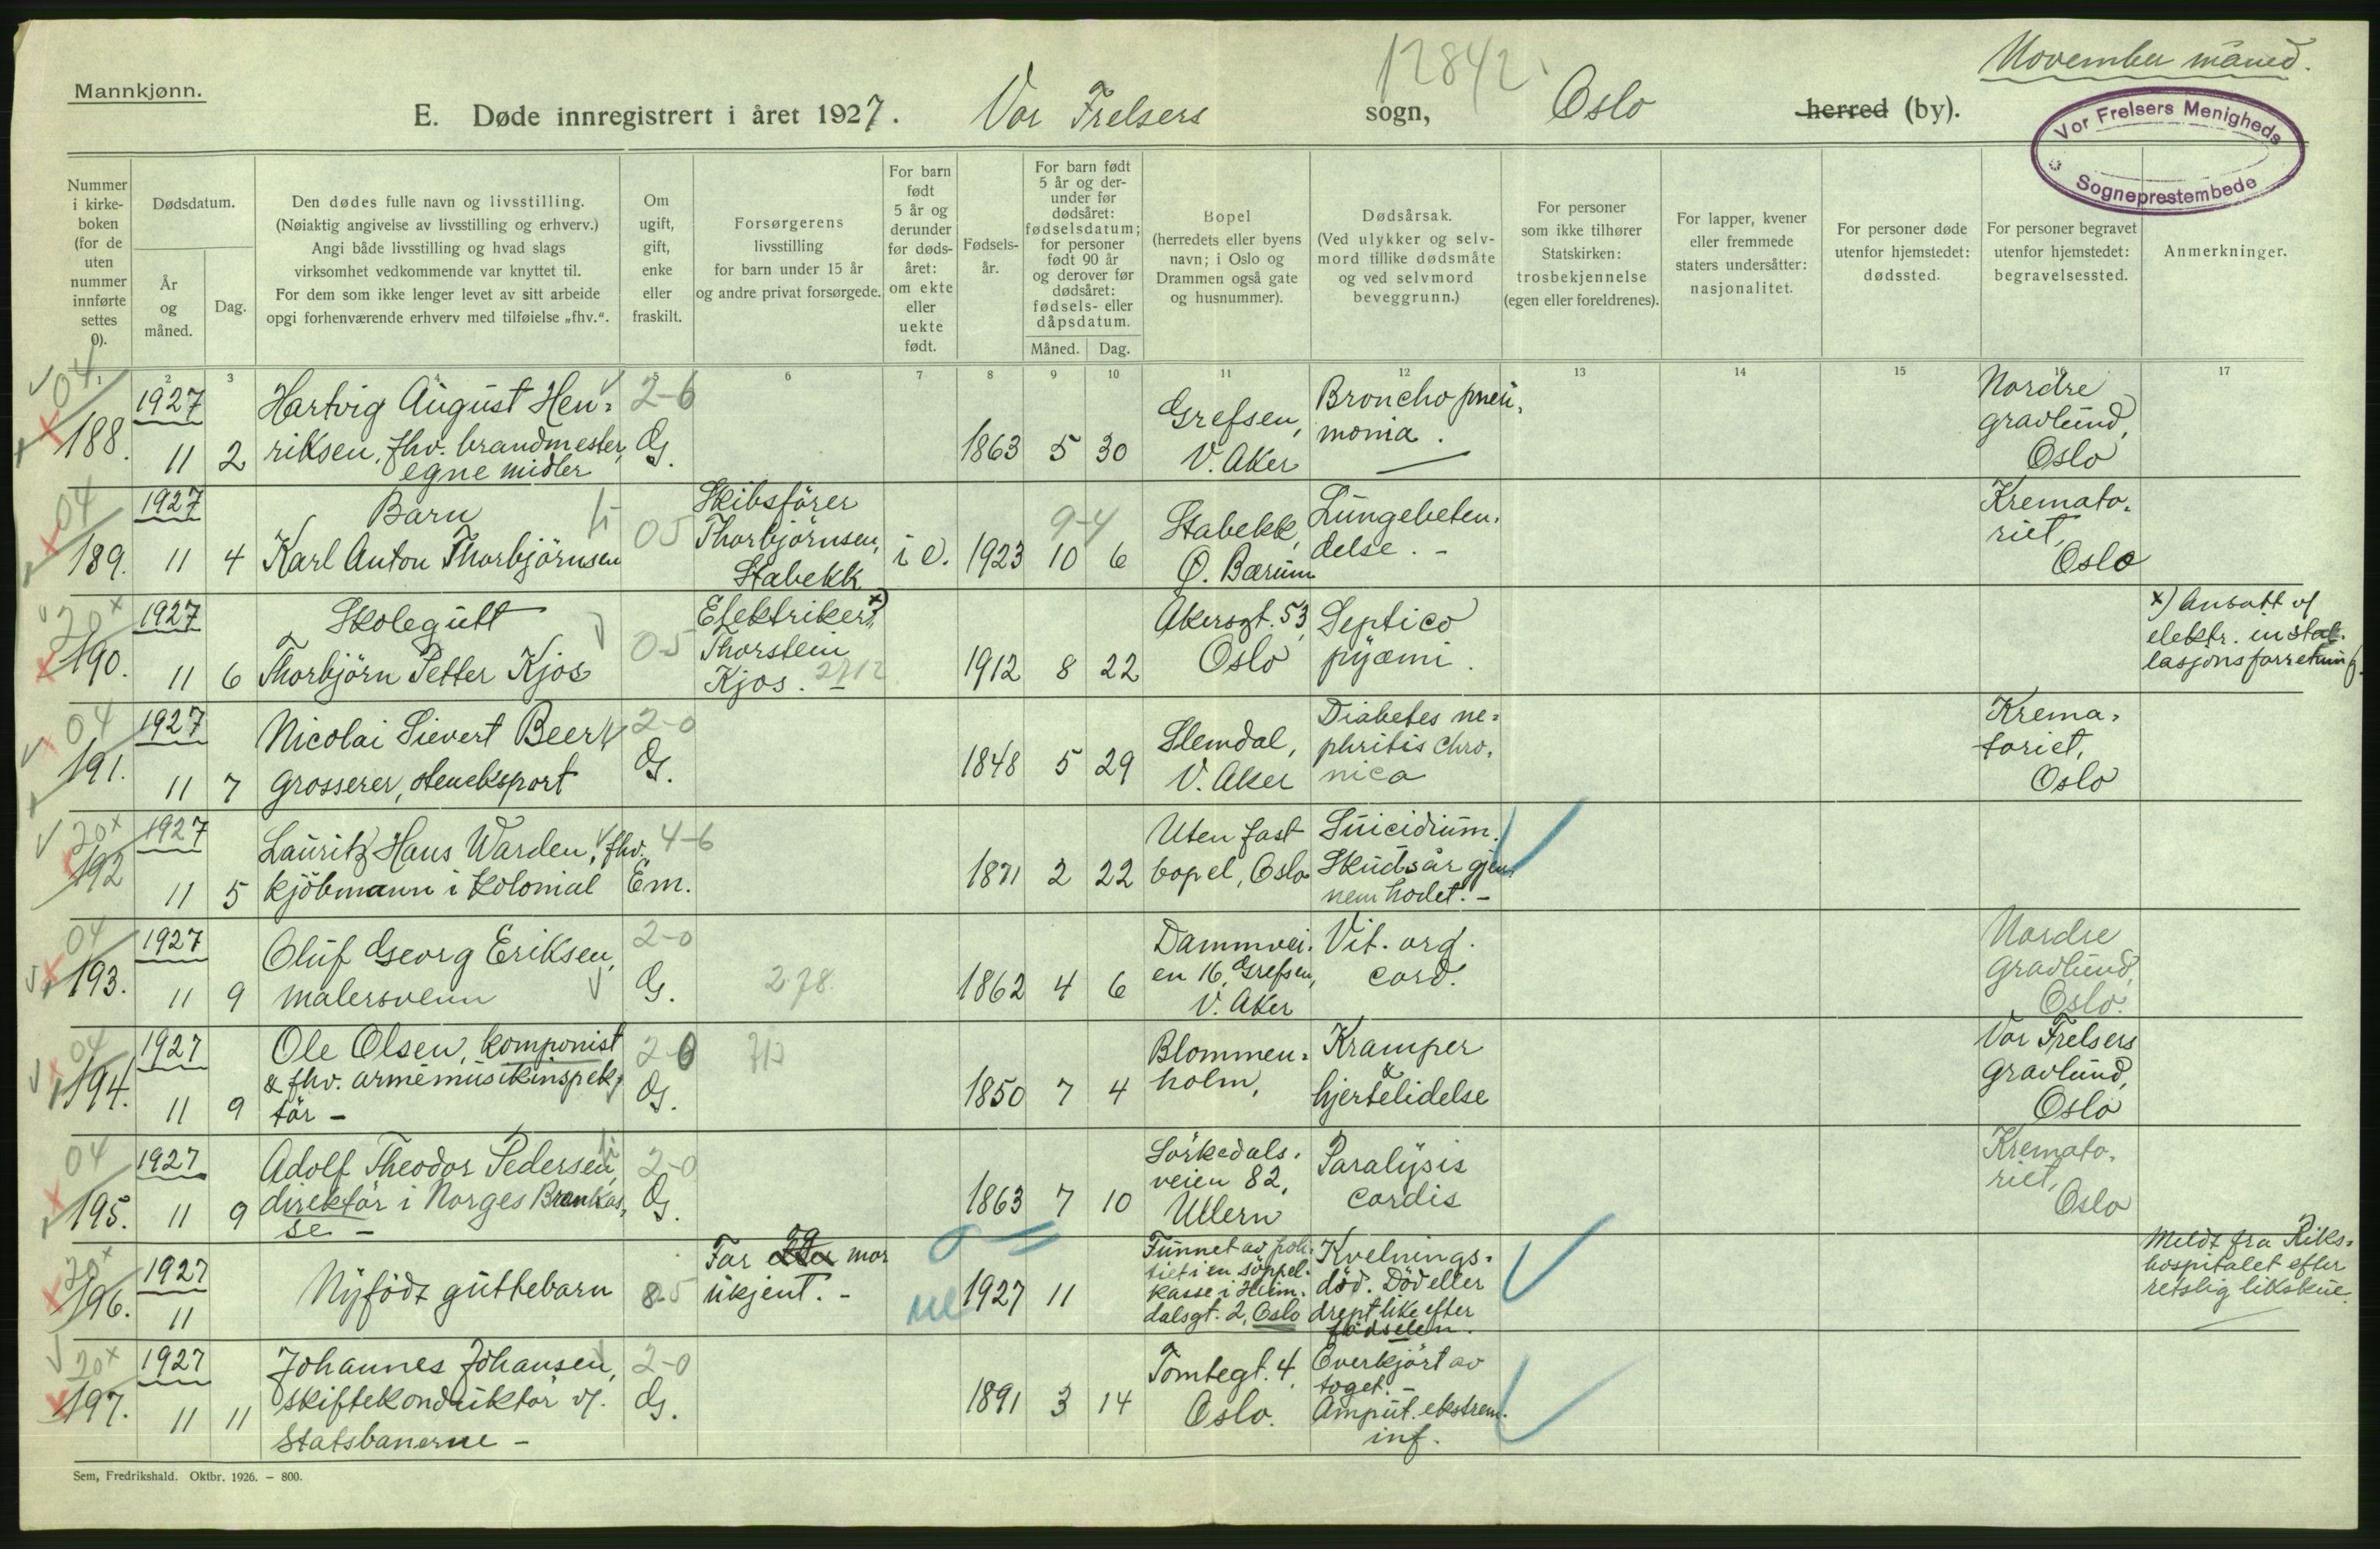 November måned.
12842.
Mannkjønn.
E. Døde innregistrert i året 1927. Vor Frelsers sogn, Oslo herred (by).
Vor Frelsers Menigheds
Sogneprestembede
Nummer
i kirke-
boken
(for de
uten
nummer
innførte
settes
0).
Dødsdatum.
År
og
måned.
Dag.
Den dødes fulle navn og livsstilling.
(Nøiaktig angivelse av livsstilling og erhverv.)
Angi både livsstilling og hvad slags
virksomhet vedkommende var knyttet til.
For dem som ikke lenger levet av sitt arbeide
opgi forhenværende erhverv med tilføielse „fhv.“.
Om
ugift,
gift,
enke
eller
fraskilt.
Forsørgerens
livsstilling
for barn under 15 år
og andre privat forsørgede.
For barn
født
5 år og
derunder
før døds-
året:
om ekte
eller
uekte
født.
Fødsels-
år.
For barn født
5 år og der-
under før
dødsåret:
fødselsdatum;
for personer
født 90 år
og derover før
dødsåret:
fødsels- eller
dåpsdatum.
Måned. Dag.
Bopel
(herredets eller byens
navn; i Oslo og
Drammen også gate
og husnummer).
Dødsårsak.
(Ved ulykker og selv-
mord tillike dødsmåte
og ved selvmord
beveggrunn.)
For personer
som ikke tilhører
Statskirken:
trosbekjennelse
(egen eller foreldrenes).
For lapper, kvener
eller fremmede
staters undersåtter:
nasjonalitet.
For personer døde
utenfor hjemstedet:
dødssted.
For personer begravet
utenfor hjemstedet:
begravelsessted.
Anmerkninger.
1 2 3 4 5 6 7 8 9 10 11 12 13 14 15 16 17
04
188.
1927
11 2
Hartvig August Hen-
riksen, fhv. brandmester,
egne midler
2-6
G.
1863 5 30
Grefsen,
V. Aker
Bronchopneu-
monia.
Nordre
gravlund,
Oslo
04
189.
1927
11 4
Barn
Karl Anton Thorbjörnsen
05
Skibsförer
Thorbjörnsen,
Stabekk
i e.
1923 10 6
9-4
Stabekk,
Ö. Bærum
Lungebeten-
delse. -
Kremato-
riet,
Oslo
20x
190.
1927
11 6
Skolegutt
Thorbjörn Petter Kjos
05
Elektriker x)
Thorstein
Kjos. 2712
1912 8 22
Akersgt. 53,
Oslo
Septico
pyæmi.
x) Ansatt v/
elektr. instal-
lasjonsforretning.
04
191.
1927
11 7
Nicolai Sievert Beer,
grosserer, steneksport
2-0
G.
1848 5 29
Slemdal,
V. Aker
Diabetes ne-
phritis chro-
nica
Krema-
toriet,
Oslo
20x
192
1927
11 5
Lauritz Hans Warden, fhv.
kjöbmann i kolonial
4-6
Em.
1871 2 22
Uten fast
bopel, Oslo
Suicidium.
Skudsår gjen-
nem hodet. -
04
193.
1927
11 9
Oluf Georg Eriksen,
malersvenn
2-0
G.
278.
1862 4 6
Dammvei-
en 16, Grefsen,
V. Aker
Vit. org.
cord.
Nordre
Gravlund,
Oslo.
04
194.
1927
11 9
Ole Olsen, komponist
& fhv. armémusikinspek-
tör -
2-6
G.
713
1850 7 4
Blommen-
holm,
Kramper
&
hjertelidelse
Vor Frelsers
gravlund,
Oslo
04
195.
1927
11 9
Adolf Theodor Pedersen,
direktör i Norges Brankas-
se -
2-0
G.
1863 7 10
Sörkedals-
veien 82,
Ullern
Paralysis
cordis
Kremato-
riet,
Oslo
20x
196.
1927
11
Nyfödt guttebarn
8-5
Far og mor
ukjent. -
1927 11
Funnet av poli-
tiet i en söppel-
kasse i Heim-
dalsgt. 2, Oslo
Kvelnings-
död. Död eller
drept like efter
födselen.
Meldt fra Riks-
hospitalet efter
retslig likskue.
20x
197.
1927
11 11
Johannes Johansen,
skiftekonduktör v/
Statsbanerne -
2-0
G.
1891 3 14
Tomtegt. 4,
Oslo.
Overkjört av
toget. -
Amput. ekstrem.
inf.
Sem, Fredrikshald. Oktbr. 1926. – 800.